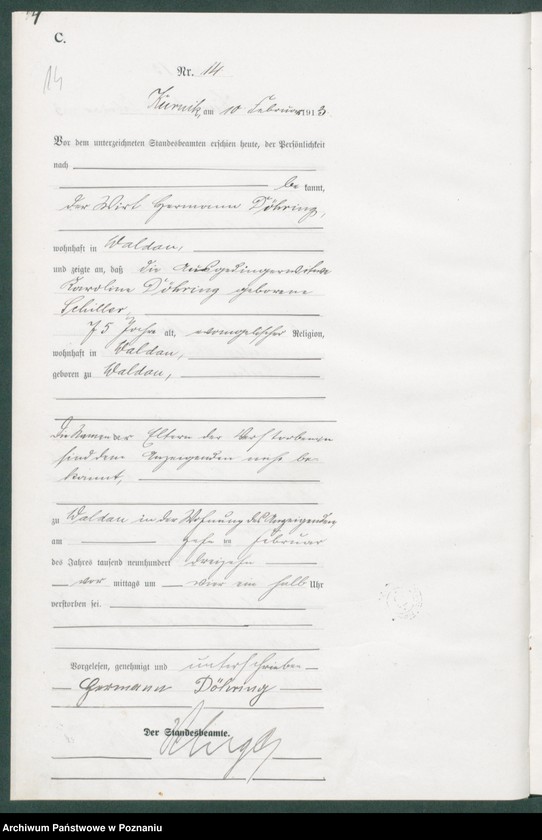 C.
14
Nr. 14
Kurnik, am 10 Februar 1913.
Vor dem unterzeichneten Standesbeamten erschien heute, der Persönlichkeit
nach
be kannt,
der Wirt Hermann Döhring,
wohnhaft in Waldau,
und zeigte an, daß die Ausgedingerwitwe
Karoline Döhring geborene
Schiller,
75 Jahre alt, evangelischer Religion,
wohnhaft in Waldau,
geboren zu Waldau,
Die Namen der Eltern der Verstorbenen
sind dem Anzeigenden nicht be
kannt,
zu Waldau in der Wohnung des Anzeigenden
am zehn ten Februar
des Jahres tausend neunhundert dreizehn
vor mittags um vier ein halb Uhr
verstorben sei.
Vorgelesen, genehmigt und unterschrieben
Hermann Döhring
Der Standesbeamte.
Archiwum Państwowe w Poznaniu